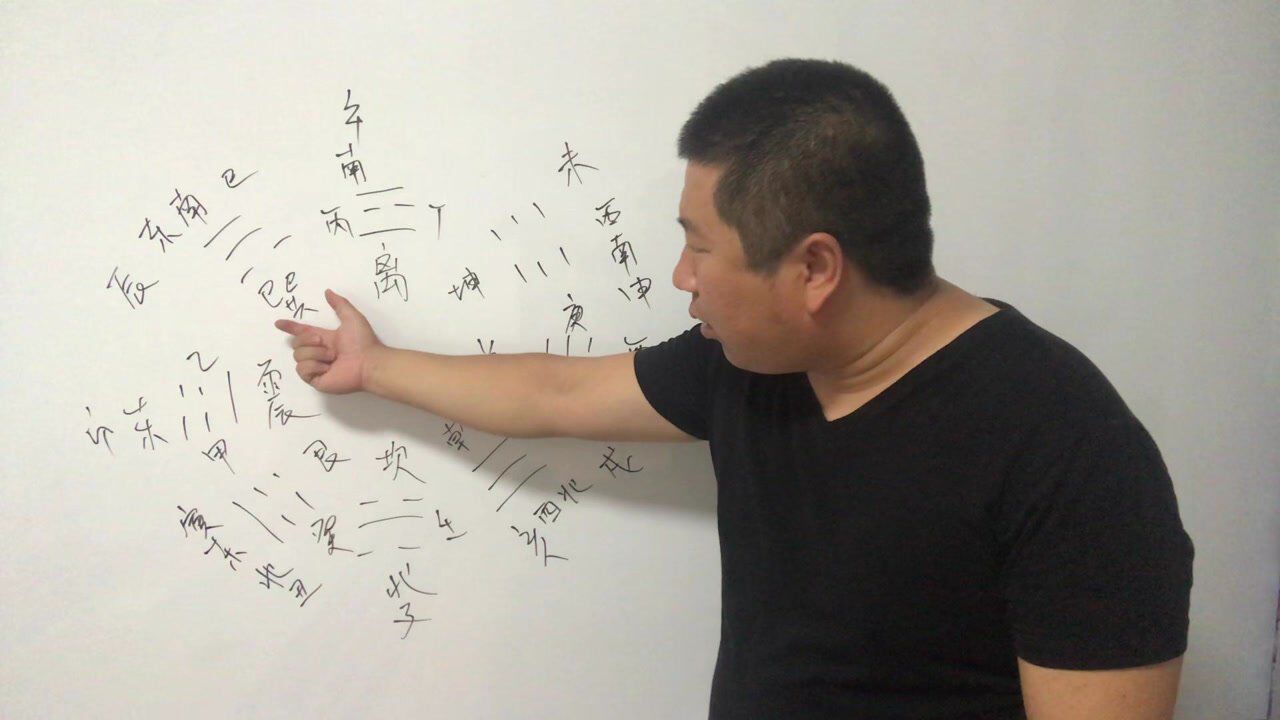 午
南
丙 丁
离
未
西南
申
坤
庚
巳
东南
辰
巽
乙
卯 东
甲
震
艮
寅
东北
丑
坎
癸
壬
北
子
乾
戌
西北
亥